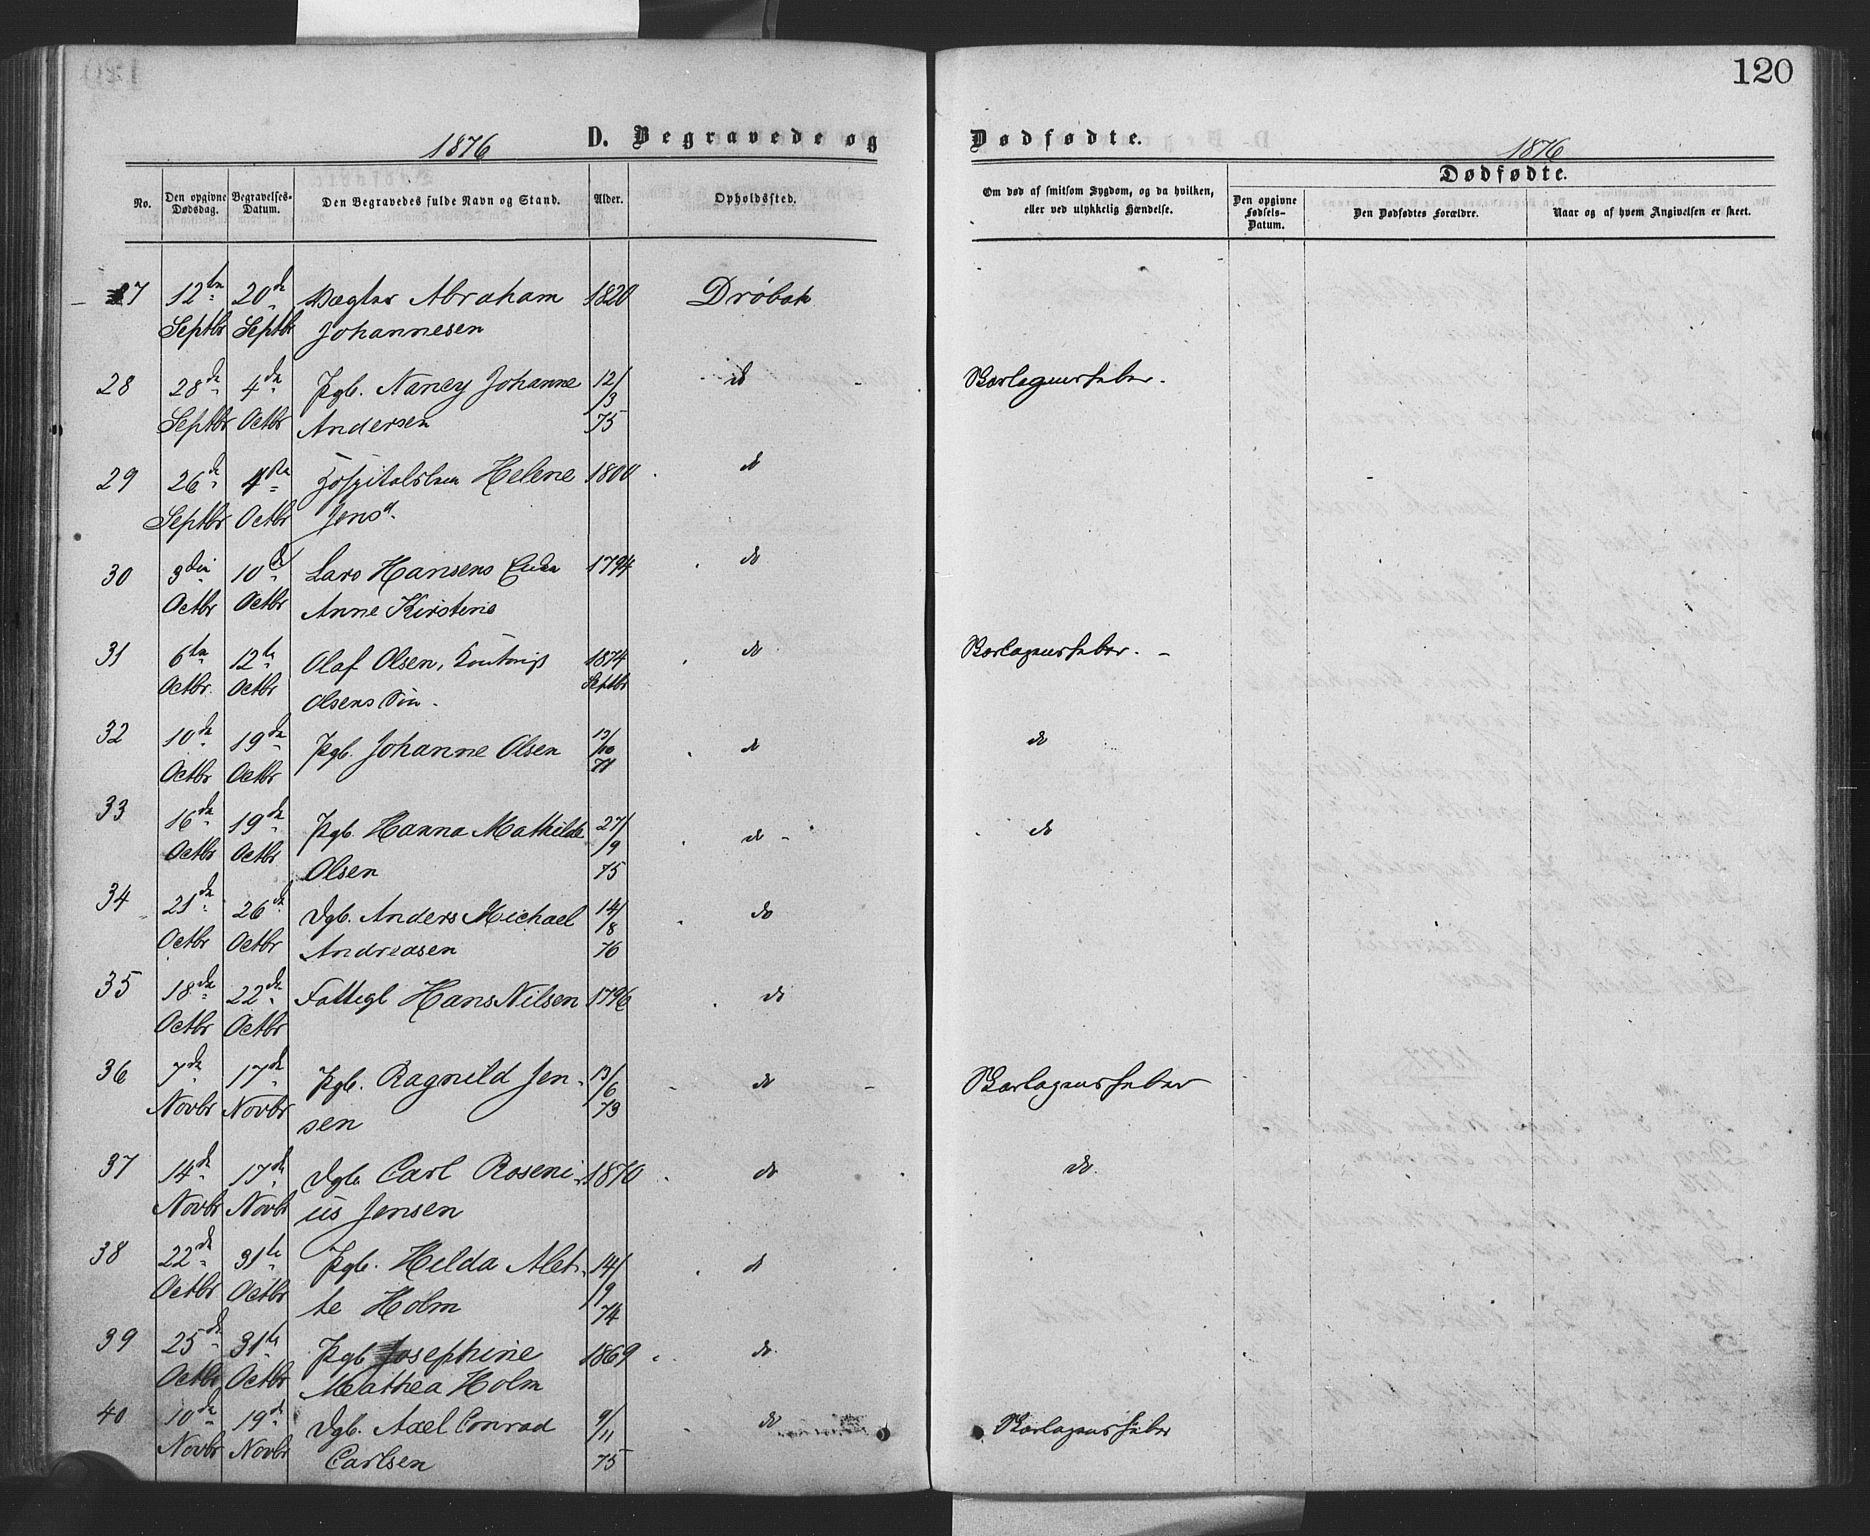 120
1876 D. Begravede og Dødfødte. 1876
Dødfødte.
No.
Den opgivne Dødsdag.
Begravelses-Datum.
Den Begravedes fulde Navn og Stand.
Alder.
Opholdssted.
Om død af smitsom Sygdom, og da hvilken, eller ved ulykkelig Hændelse.
Den opgivne Fødsels-Datum.
Den Dødfødtes Forældre.
Naar og af hvem Angivelsen er skeet.
27 12te 20de Abraham 1820 Drøbak
Septbr Septbr Johannesen
28 28de 4de Pgb. Nancy Johanne 12/3 do Skarlagensfeber.
Septbr Octbr Andersen 75
29 26de 4de Hospitalslem Helene 1800 do
Septbr Octbr Jensd.
30 3die 10de Lars Hansens Enke 1794 do
Octbr Octbr Anne Kirstine
31 6te 12te Olaf Olsen, 1874 do Skarlagensfeber.
Octbr. Octbr Septbr
Olsens Søn.
32 10de 19de Pgb. Johanne Olsen 13/10 do do
Octbr Octbr 71
33 16de 19de Pgb. Hanna Mathilde 27/9 do do
Octbr Octbr Olsen 75
34 21de 26de Dgb. Anders Michael 14/8 do
Octbr Octbr Andreasen 76
35 18de 22de Fattigl Hans Nilsen 1796 do
Octbr Octbr
36 7de 17de Pgb. Ragnild Jen- 13/6 do Skarlagensfeber
Novbr Novbr sen 73
37 14de 17de Dgb. Carl Roseni- 1870 do do.
Novbr Novbr us Jensen
38 22de 31te Pgb. Hilda Alet- 14/9 do
Octbr Octbr te Holm 74
39 25de 31te Pgb Josephine 1869 do
Octbr Octbr Mathea Holm
40 10de 19de Dgb. Axel Conrad 9/11 do Skarlagensfeber
Novbr Novbr Carlsen 75